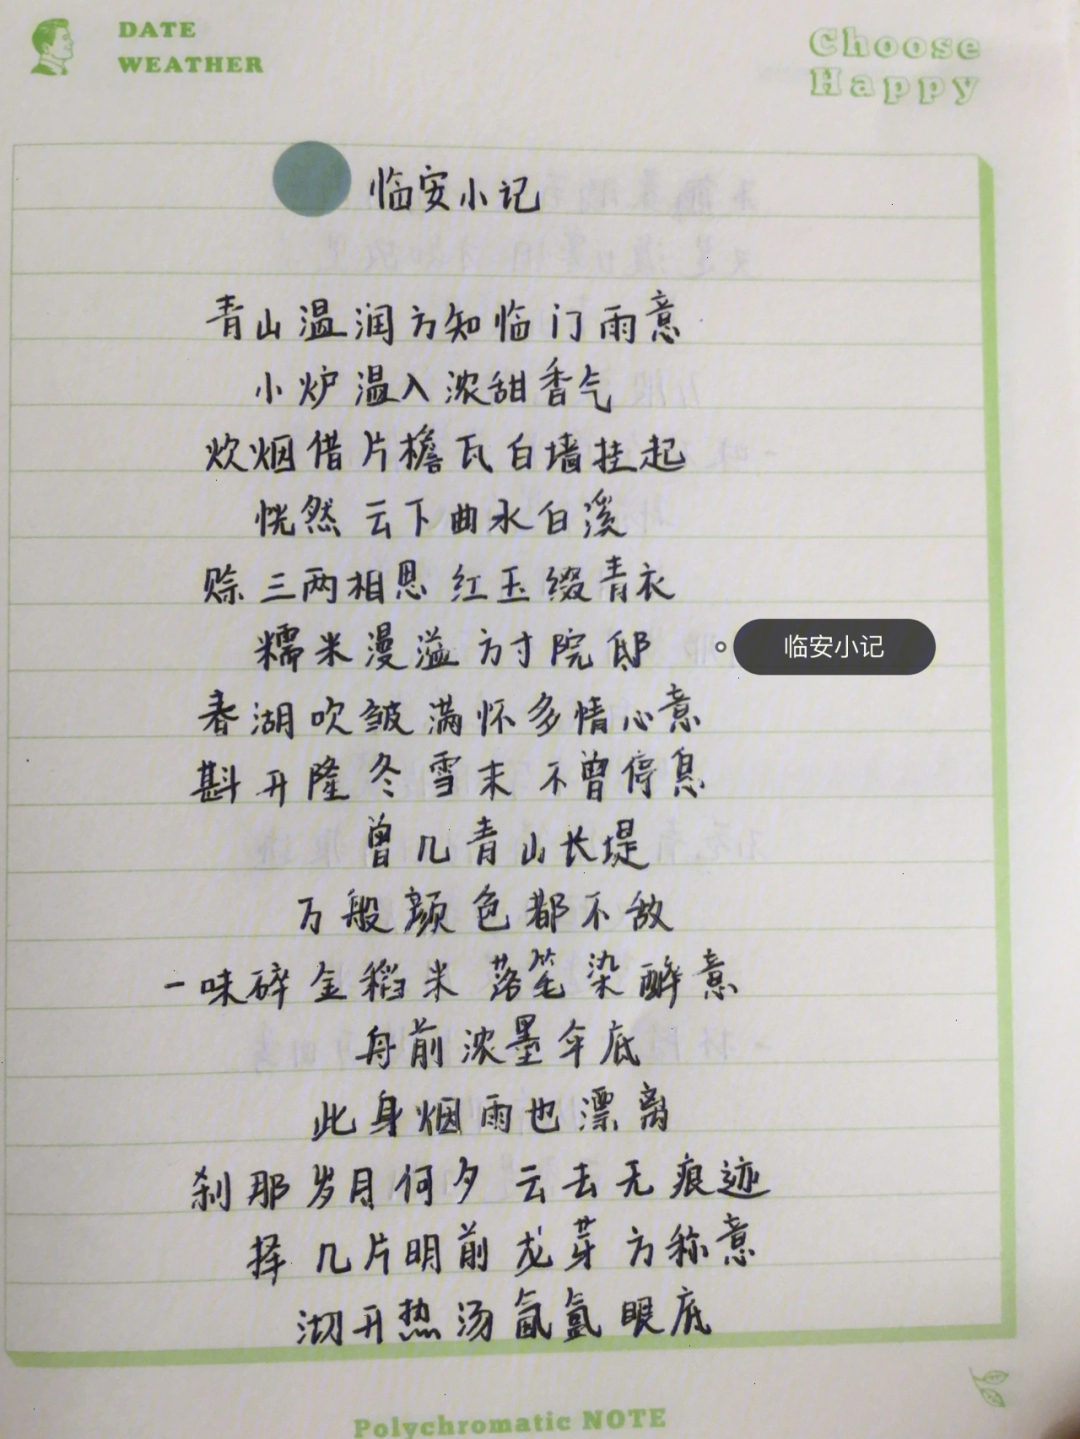 DATE
WEATHER
Choose
Happy
临安小记
青山温润方知临门雨意
小炉温入浓甜香气
炊烟借片檐瓦白墙挂起
恍然云下曲水白溪
赊三两相思 红玉缀青衣
糯米漫溢方寸院邸
临安小记
春湖吹皱满怀多情心意
斟开隆冬雪末 不曾停息
曾几青山长堤
万般颜色都不敌
一味碎金稻米 落笔染醉意
舟前浓墨伞底
此身烟雨也漂离
刹那岁月何夕 云去无痕迹
择几片明前龙芽方称意
沏开热汤氤氲眼底
Polychromatic NOTE